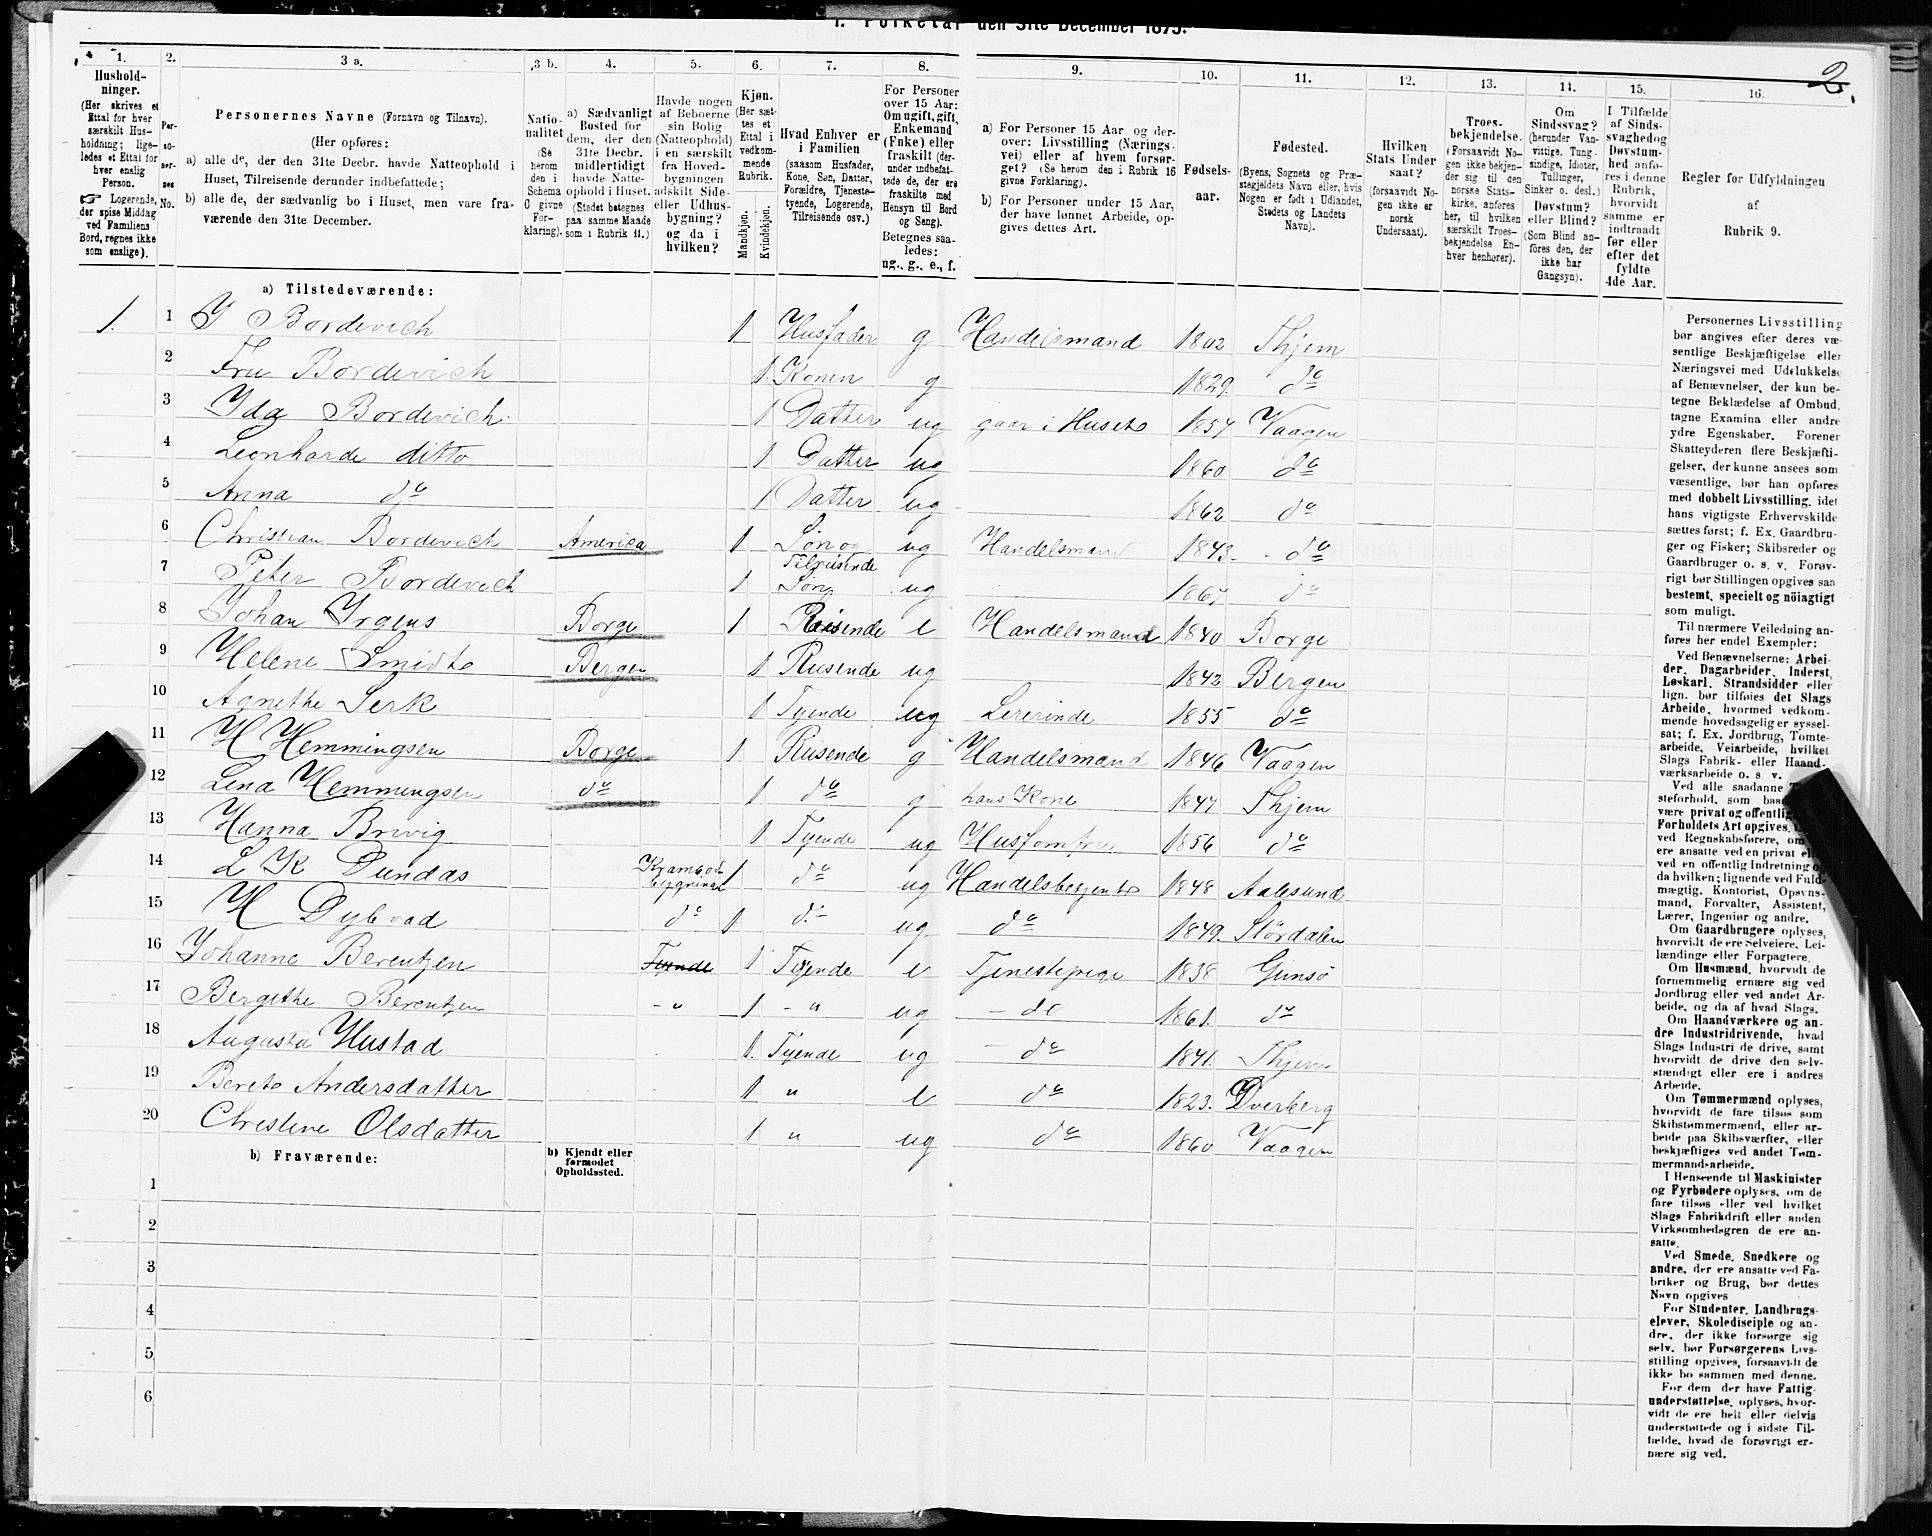 1. Folketal den 31te December 1875.
2.
1. 2. 3 a. 3 b. 4. 5. 6. 7. 8. 9. 10. 11. 12. 13. 14. 15. 16.
Hushold-
ninger.
(Her skrives et
Ettal for hver
særskilt Hus-
holdning; lige-
ledes et Ettal for
hver enslig
Person.
☞ Logerende,
der spise Middag
ved Familiens
Bord, regnes ikke
som enslige).
Per-
so-
ner-
nes
No.
Personernes Navne (Fornavn og Tilnavn).
(Her opføres:
a) alle de, der den 31te Decbr. havde Natteophold i
Huset, Tilreisende derunder indbefattede;
b) alle de, der sædvanlig bo i Huset, men vare fra-
værende den 31te December.
Natio-
nalitet
(Se
herom
den i
Schema
C givne
For-
klaring).
a) Sædvanligt
Bosted for
dem, der den
31te Decbr.
midlertidigt
havde Natte-
ophold i Huset.
(Stedet betegnes
paa samme Maade
som i Rubrik 11.)
Havde nogen
af Beboerne
sin Bolig
(Natteophold)
i en særskilt
fra Hoved-
bygningen
adskilt Side-
eller Udhus-
bygning?
og da i
hvilken?
Kjøn.
(Her sæt-
tes et
Ettal i
vedkom-
mende
Rubrik.
Mandkjøn.
Kvindekjøn.
Hvad Enhver er
i Familien
(saasom Husfader,
Kone, Søn, Datter,
Forældre, Tjeneste-
tyende, Logerende,
Tilreisende osv.)
For Personer
over 15 Aar:
Om ugift, gift,
Enkemand
(Enke) eller
fraskilt (der-
under indbefat-
tede de, der ere
fraskilte med
Hensyn til Bord
og Seng).
Betegnes saa-
ledes:
ug., g., e., f.
a) For Personer 15 Aar og der-
over: Livsstilling (Nærings-
vei) eller af hvem forsør-
get? (Se herom den i Rubrik 16
givne Forklaring).
b) For Personer under 15 Aar,
der have lønnet Arbeide, op-
gives dettes Art.
Fødsels-
aar.
Fødested.
(Byens, Sognets og Præ-
stegjeldets Navn eller, hvis
Nogen er født i Udlandet,
Stedets og Landets
Navn).
Hvilken
Stats Under
saat?
(forsaavidt No-
gen ikke er
norsk
Undersaat).
Troes-
bekjendelse.
(Forsaavidt No-
gen ikke bekjen-
der sig til den
norske Stats-
kirke, anføres
her, til hvilken
særskilt Troes-
bekjendelse En-
hver henhører).
Om
Sindssvag?
(herunder Van-
vittige, Tung-
sindige, Idioter,
Tullinger,
Sinker o. desl.)
Døvstum?
eller Blind?
(Som Blind an-
føres den, der
ikke har
Gangsyn).
I Tilfælde
af Sinds-
svaghed og
Døvstum-
hed anfø-
res i denne
Rubrik,
hvorvidt
samme er
indtraadt
før eller
efter det
fyldte
4de Aar.
Regler for Udfyldningen
af
Rubrik 9.
a) Tilstedeværende:
1. 1 J Bordevich 1 Husfader g Handelsmand 1802 Thjem
2 Fru Bordevich 1. Konen g 1829. do
3 Ida Bordevich. 1 Datter ug gaar i Husets 1857 Vaagen
4 Leonharde ditto 1 Datter ug 1860 do
5 Anna do 1 Datter ug 1862 do
6 Christian Bordevich America 1 Søn og Tilreisende ug Handelsmand 1843. - do
7 Peter Bordevich 1 Søn ug 1867 do
8 Johan Irgens Borge 1 Reisende e Handelsmand 1840 Borge
9 Helene Smidt Bergen 1 Reisende ug 1842 Bergen
10 Agnethe Lerk 1 Tyende ug Lererinde 1855 do
11 H Hemmingsen Borge 1 Reisende g Handelsmand 1846 Vaagen
12 Lena Hemmingsen do 1 do g hans Kone 1847 Thjem
13 Hanna Brivig 1 Tyende ug Husfomfru 1856 do
14 L K Dundas Krambod bygningen 1 do ug Handelsbetjente 1848 Aalesund
15 H Dybvad do 1 do ug do 1849. Stördalen
16 Johanne Berentzen Tyende 1 Tyende e Tjenestepige 1838 Gimsö
17 Bergithe Berentzen - " 1 - " ug - do 1861. do
18 Augusta Hustad 1. Tyende ug - do 1841. Thjem
19 Berete Andersdatter 1 " e do 1823. Dverberg
20 Christine Olsdatter 1 " ug do 1860 Vaagen
b) Fraværende:
b) Kjendt eller
formodet
Opholdssted.
1
2
3
4
5
6
Personernes Livsstilling
bør angives efter deres væ-
sentlige Beskjæftigelse eller
Næringsvei med Udelukkelse
af Benævnelser, der kun be-
tegne Beklædelse af Ombud,
tagne Examina eller andre
ydre Egenskaber. Forener
Skatteyderen flere Beskjæfti-
gelser, der kunne ansees som
væsentlige, bør han opføres
med dobbelt Livsstilling, idet
hans vigtigste Erhvervskilde
sættes først; f. Ex. Gaardbru-
ger og Fisker; Skibsreder og
Gaardbruger o. s. v. Forøv-
rigt bør Stillingen opgives saa
bestemt, specielt og nöiagtigt
som muligt.
Til nærmere Veiledning an-
føres her endel Exempler:
Ved Benævnelserne: Arbei-
der, Dagarbeider, Inderst,
Løskarl, Strandsidder eller
lign. bør tilføies det Slags
Arbeide, hvormed vedkom-
mende hovedsagelig er syssel-
sat; f. Ex. Jordbrug, Tomte-
arbeide, Veiarbeide, hvilket
Slags Fabrik- eller Haand-
værksarbeide o. s. v.
Ved alle saadanne
steforhold, som
være privat og offentlig
Forholdets Art opgives,
ved Regnskabsførere, om
ere ansatte ved en privat
ved en offentlig Indretning og
da hvilken; lignende ved Fuld-
mægtig, Kontorist, Opsyns-
mand, Forvalter, Assistent,
Lærer, Ingeniør og andre.
Om Gaardbrugere oplyses,
hvorvidt de ere Selveiere, Lei-
lændinge eller Forpagtere.
Om Husmænd, hvorvidt de
fornemmelig ernære sig ved
Jordbrug eller ved andet Ar-
beide, og da af hvad Slags.
Om Haandværkere og an-
dre Industridrivende, hvad
Slags Industri de drive, samt
hvorvidt de drive den selv-
stændigt eller ere i andres
Arbeide.
Om Tømmermænd oplyses,
hvorvidt de fare tilsøs som
Skibstømmermænd, eller ar-
beide paa Skibsværfter, eller
beskjæftiges ved andet Tøm-
mermandsarbeide.
I Henseende til Maskinister
og Fyrbødere oplyses, om de
fare tilsøs eller ved hvilket
Slags Fabrikdrift eller anden
Virksomhedsgren de ere an-
satte.
Ved Smede, Snedkere og
andre, der ere ansatte ved Fa-
briker og Brug, bør dettes
Navn opgives
For Studenter, Landbrugs-
elever, Skoledisciple og an-
dre, der ikke forsørge sig
selv, bør Forsørgerens Livs-
stilling opgives, forsaavidt de
ikke bo sammen med denne.
For dem der have Fattig-
understøttelse, oplyses, hvor-
vidt de ere helt eller delvis
understøttede og i sidste Til-
fælde, hvad de forøvrigt er-
nære sig ved.